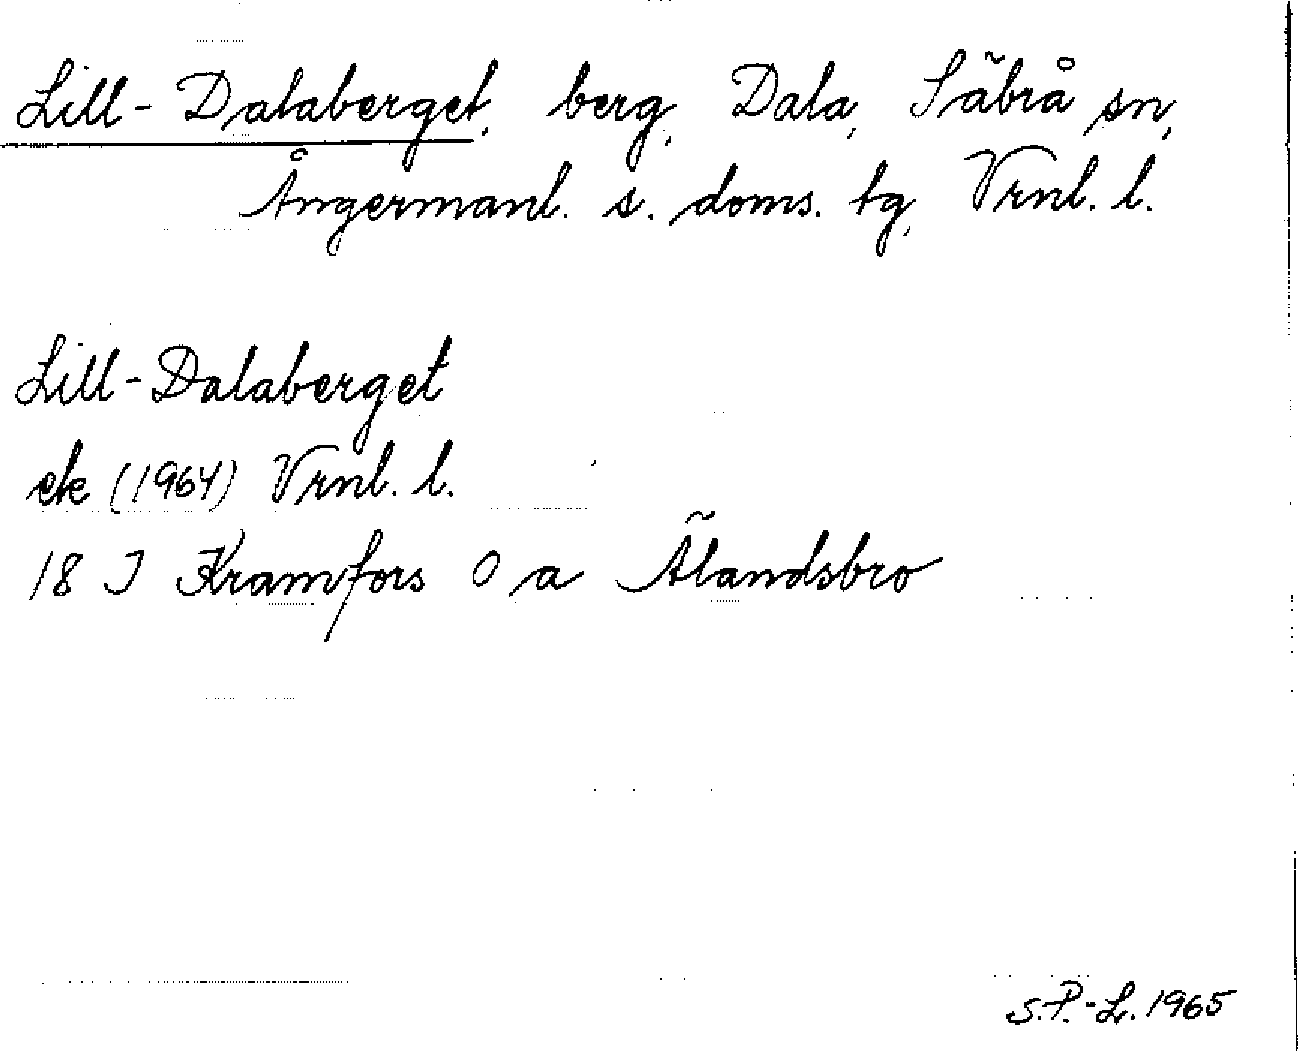 Lill-Dalaberget, berg, Dala, Säbrå sn,
Ångermanl. s. doms. tg, Vrnl. l.
Lill-Dalaberget
ek (1964) Vrnl. l.
18 I Kramfors O a Älandsbro
S.P.-L. 1965